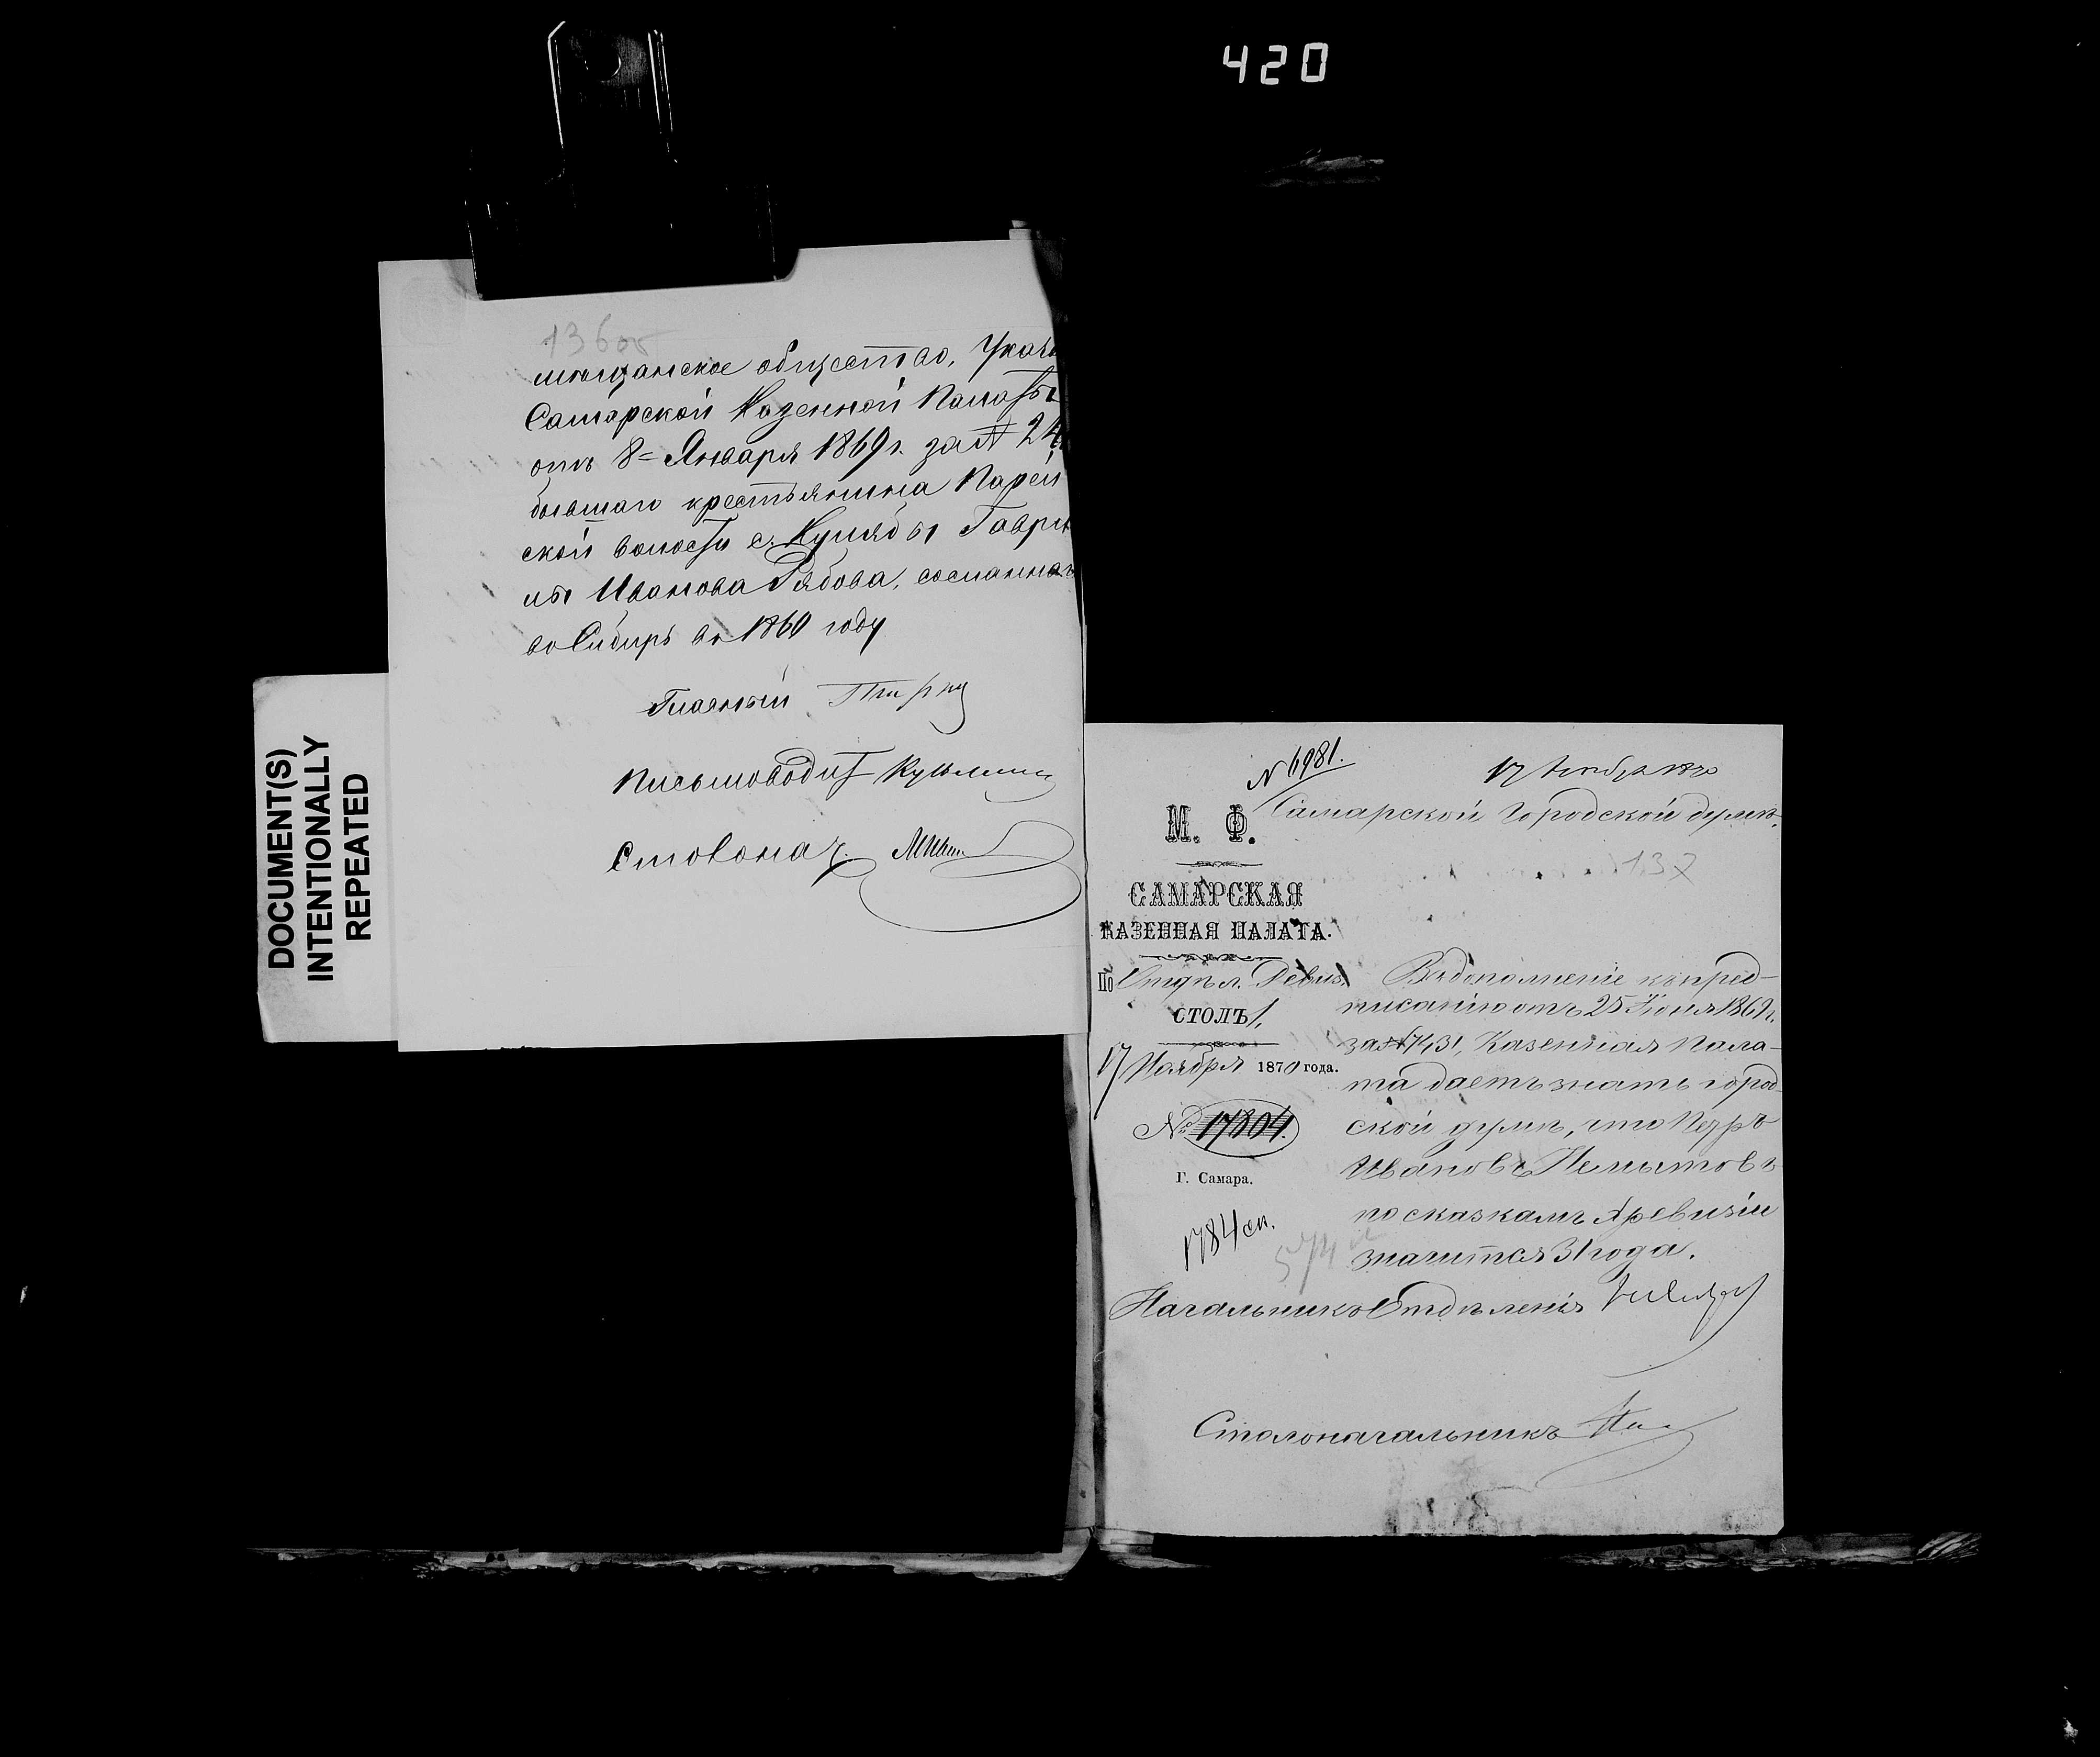 420
136 об
мѣщанское общество, Указ
Самарской Казенной Палаты
отъ 8 = Января 1869 г. за № 24
бывшаго крестьянина
ской волости с. Кулябы Гаври
лы Иванова Рябова, сосланнаго
въ Сибирь въ 1860 году
Гласный
Письмовод
Столонач.
DOCUMENT(S)
INTENTIONALLY
REPEATED
№ 6981.
17 Ноября 1870
М. Ф.
Самарской Городской думѣ.
137
САМАРСКАЯ
КАЗЕННАЯ ПАЛАТА.
По Отдѣл. Ревиз.
СТОЛЪ 1.
17 Ноября 1870 года.
№ 17804.
Г. Самара.
1784 сп.
Въ дополненіе къ пред-
писанію отъ 25 Іюня 1869 г.
за № 7431, Казенная Пала-
та даетъ знать город-
ской думѣ, что Петръ
Ивановъ Немытовъ
по сказкамъ X ревизіи
значится 31 года.
Начальникъ Отдѣленія
Столоначальникъ